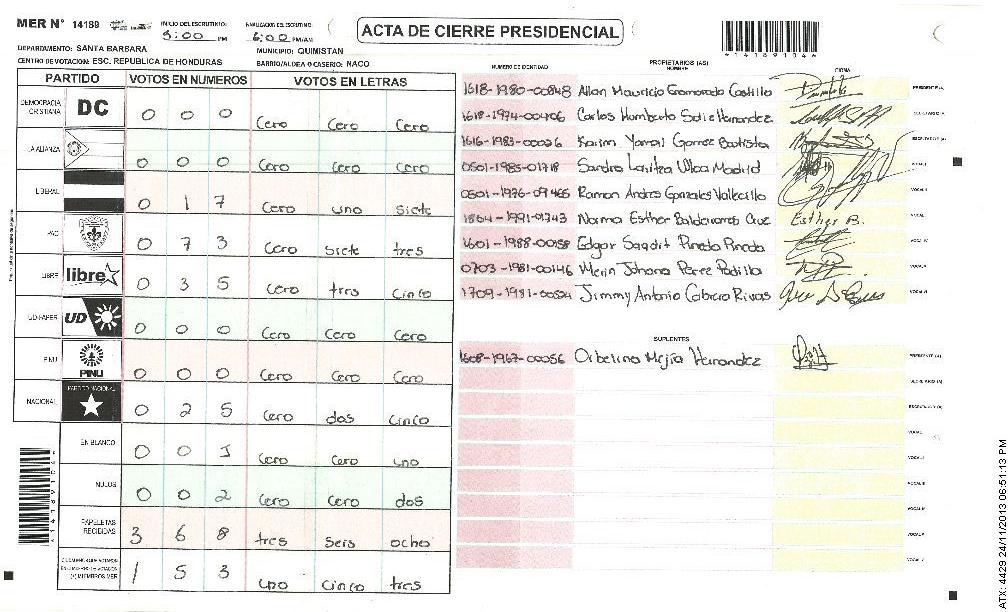 MER N° 14189
INICIO DEL ESCRUTINIO: 5:00 PM
FINALIZACION DEL ESCRUTINIO: 6:00 PM/AM
ACTA DE CIERRE PRESIDENCIAL
DEPARTAMENTO: SANTA BARBARA
MUNICIPIO: QUIMISTAN
CENTRO DE VOTACION: ESC. REPUBLICA DE HONDURAS
BARRIO/ALDEA O CASERIO: NACO
PARTIDO VOTOS EN NUMEROS VOTOS EN LETRAS
DEMOCRACIA CRISTIANA DC 0 0 0 Cero Cero Cero
LA ALIANZA 0 0 0 Cero Cero Cero
LIBERAL 0 1 7 Cero uno siete
PAC 0 7 3 Cero siete tres
LIBRE libre 0 3 5 Cero tres Cinco
UD-FAPER UD 0 0 0 Cero Cero Cero
PINU PINU 0 0 0 Cero Cero Cero
NACIONAL PARTIDO NACIONAL 0 2 5 Cero dos Cinco
EN BLANCO 0 0 1 Cero Cero uno
NULOS 0 0 2 Cero Cero dos
PAPELETAS RECIBIDAS 3 6 8 tres seis ocho
1 5 3 uno cinco tres
NUMERO DE IDENTIDAD PROPIETARIOS (AS) NOMBRE FIRMA
1618-1980-00848 Allan Mauricio Castillo PRESIDENTE (A)
1618-1974-00406 Carlos Humberto Hernandez SECRETARIO (A)
1616-1983-00026 Karim Yamal Gomez Bautista ESCRUTADOR (A)
0501-1985-01718 Sandra Ulloa Madrid VOCAL I
0501-1976-09465 Ramon Andres Gonzales Vallecillo VOCAL II
1804-1991-01743 Norma Esther Cruz Esther B. VOCAL
1601-1988-00158 Edgar Pineda Pineda VOCAL IV
0703-1981-00146 Merin Johana Perez Padilla VOCAL V
1709-1981-00524 Jimmy Antonio Cabrera Rivas VOCAL VI
SUPLENTES
1608-1967-00056 Orbelina Mejia Hernandez PRESIDENTE (A)
SECRETARIO (A)
ESCRUTADOR (A)
VOCAL I
VOCAL II
VOCAL III
VOCAL IV
VOCAL V
ATX: 4429 24/11/2013 06:51:13 PM